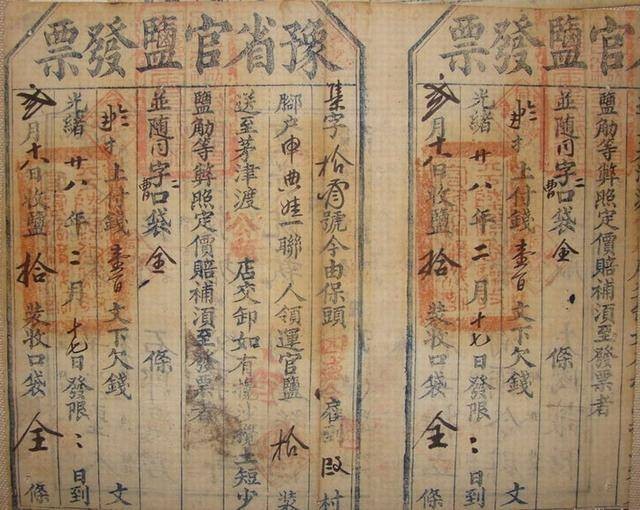 官鹽發票
鹽觔等弊照定價賠補須至發票者
並随同字口袋全 條
上付錢壹百文下欠錢 文
光緒廿八年二月十七日發限 日到
月十八日收鹽拾装收口袋全 條
豫省官鹽發票
集字拾 號今由保頭 到 段村
腳户申典娃一聯人領運官鹽拾装
送至茅津渡 店交卸如有攙沙攪土短少
鹽觔等弊照定價賠補須至發票者
並随同字口袋全 條
上付錢壹百文下欠錢 文
光緒廿八年二月十七日發限 日到
月十八日收鹽拾装收口袋全 條